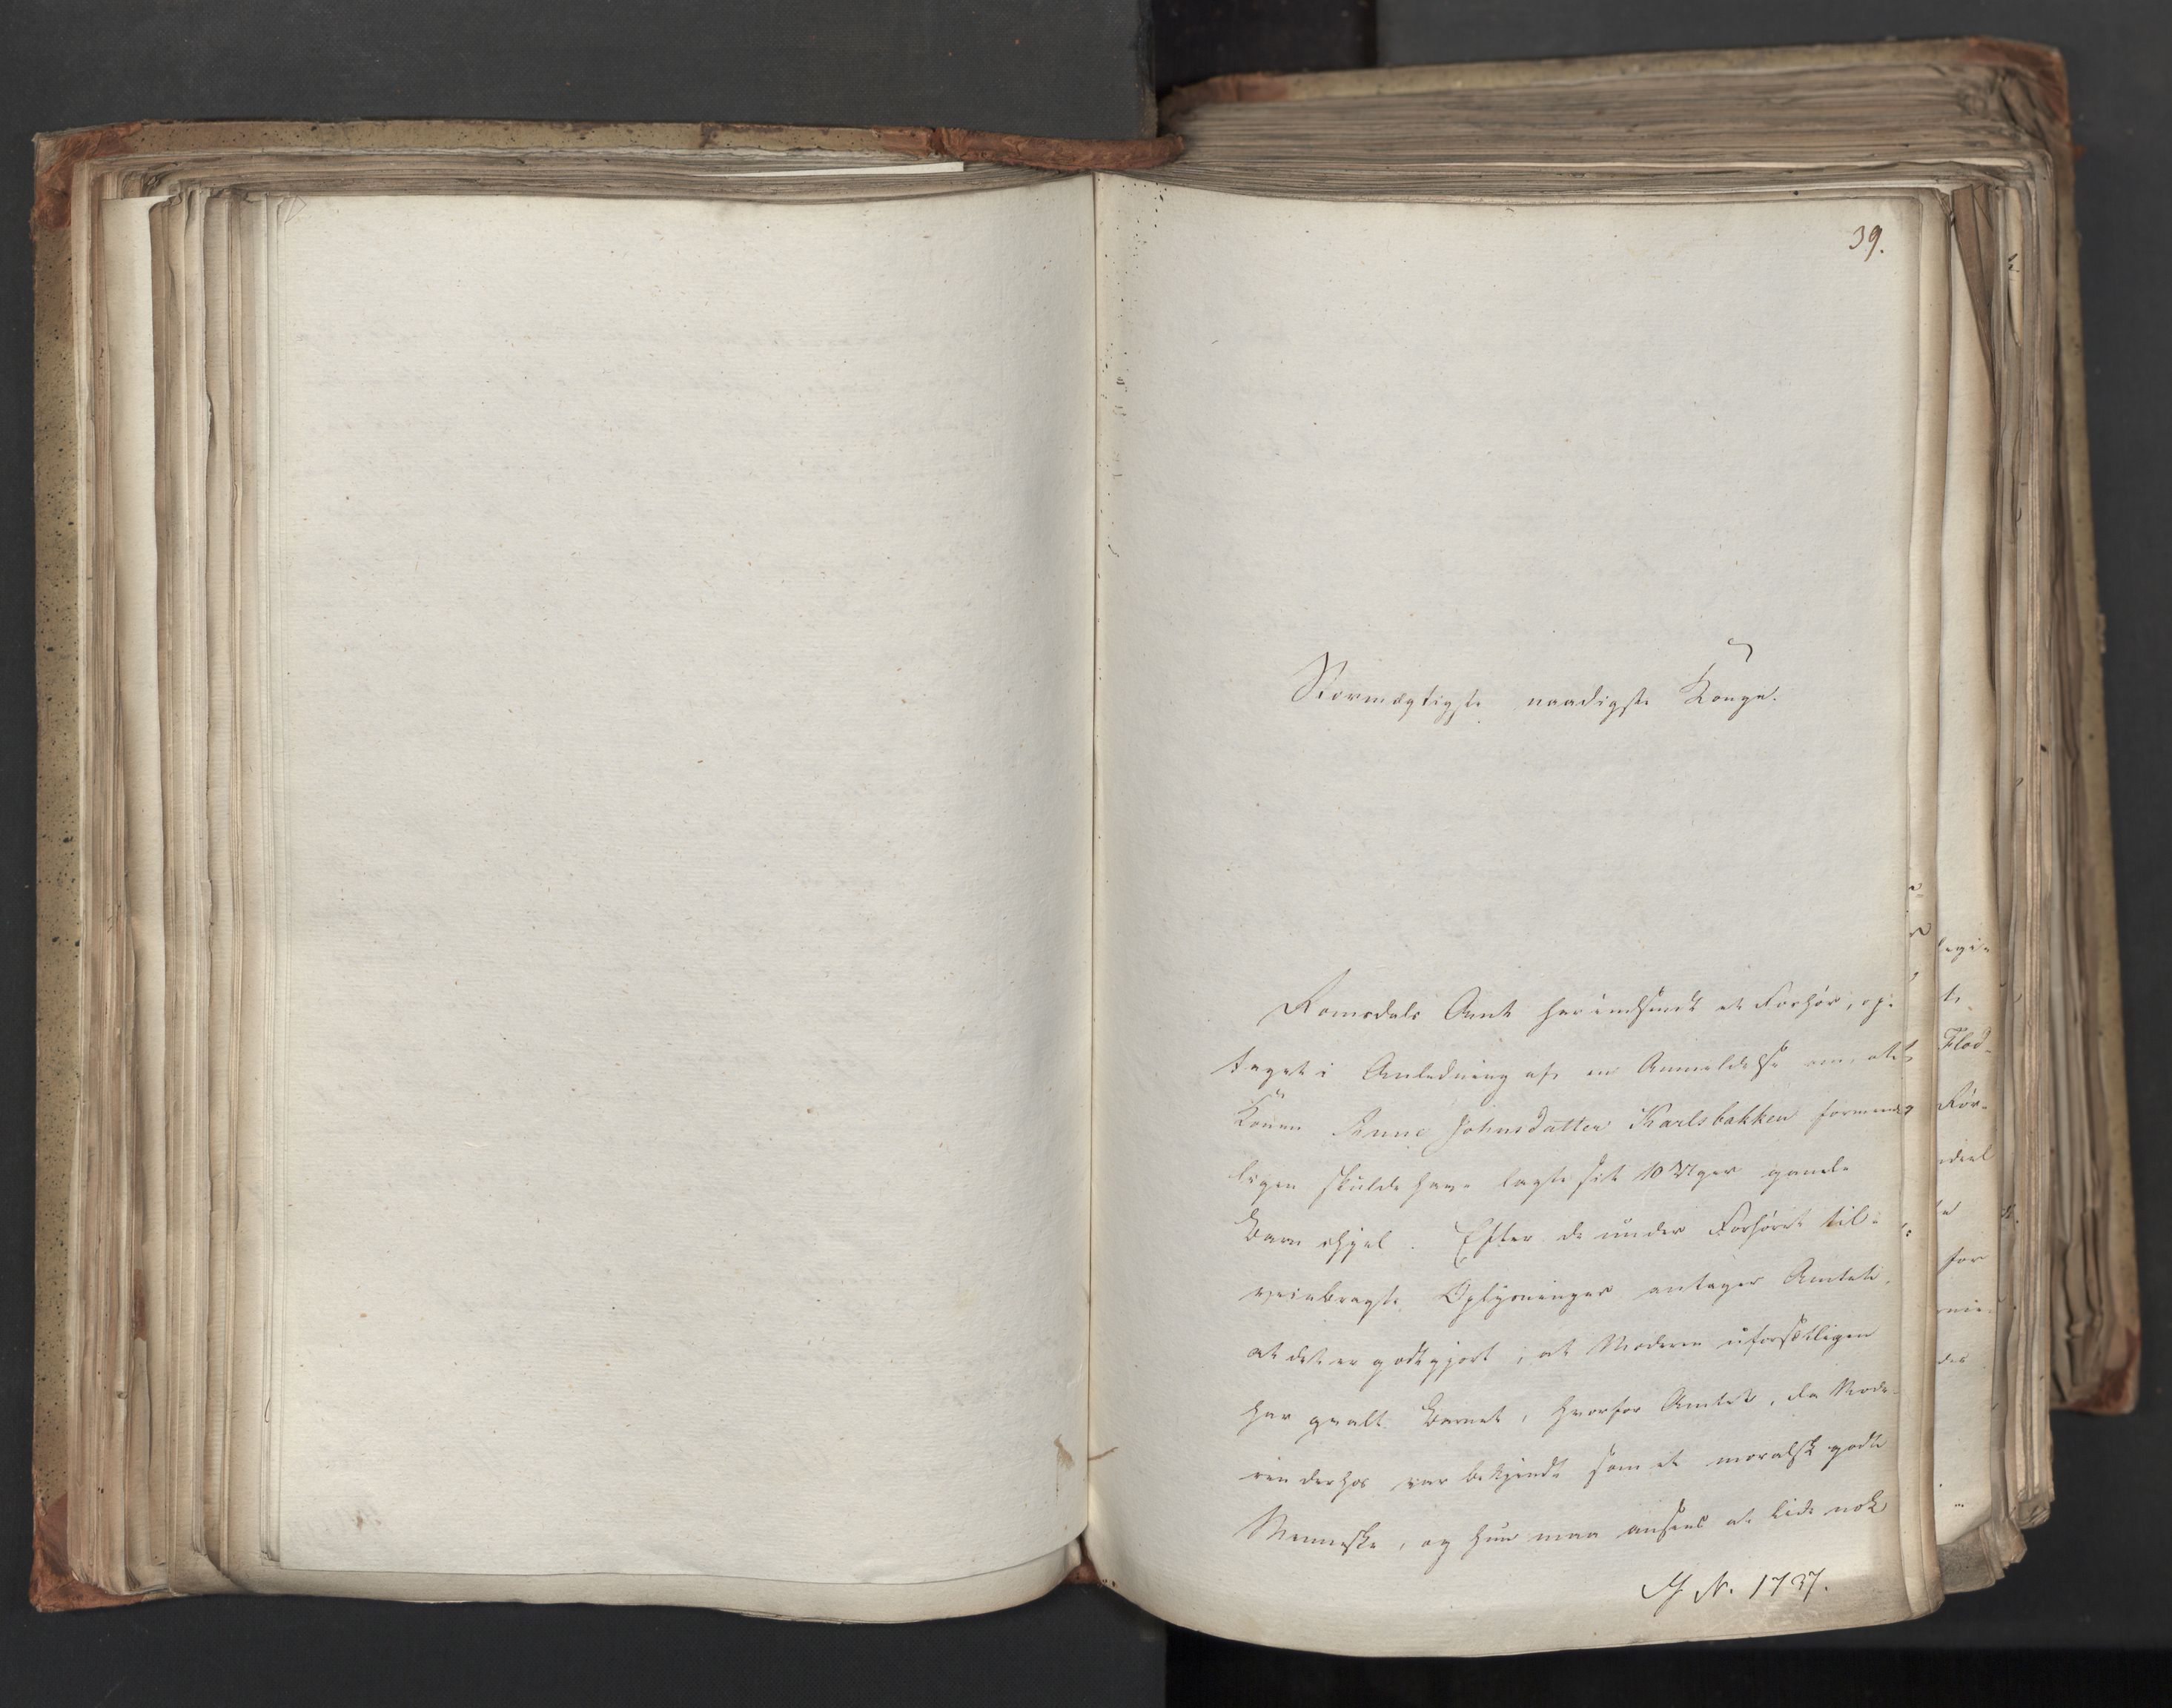 39.
Stormægtigste naadigste Konge.
Romsdals Amt har indsendt et Forhør, op-
taget i Anledning af en Anmeldelse om, at
Konen Anne Johnsdatter Karlsbakken formeent-
ligen skulde have lagt sit 10 Uger gamle
Barn ihjel. Efter de under Forhøret til-
veiebragte Oplysninger antager Amtet,
at det er godtgjort, at Moderen uforsætligen
har qvalt Barnet, hvorfor Amtet, da Mode-
ren derhos var bekjendt som et moralsk godt
Menneske, og hun maa ansees at lide nok
J N. 1737.
Flod-
for